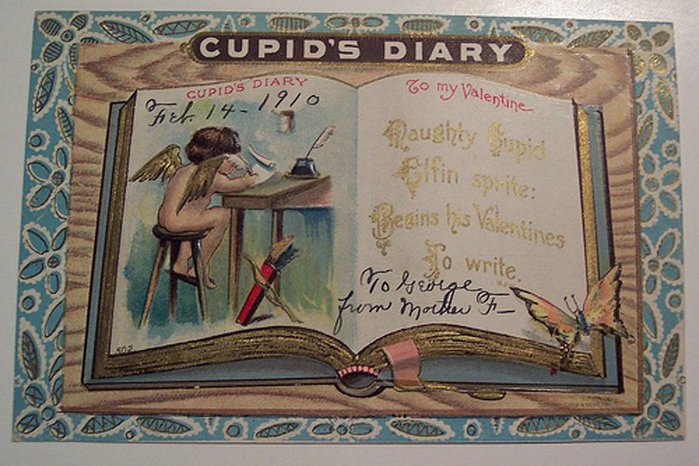 CUPID'S DIARY
CUPID'S DIARY
Feb. 14 - 1910
To my Valentine
Naughty Cupid
Elfin sprite:
Begins his Valentines
To write.
To George
from Mother F—